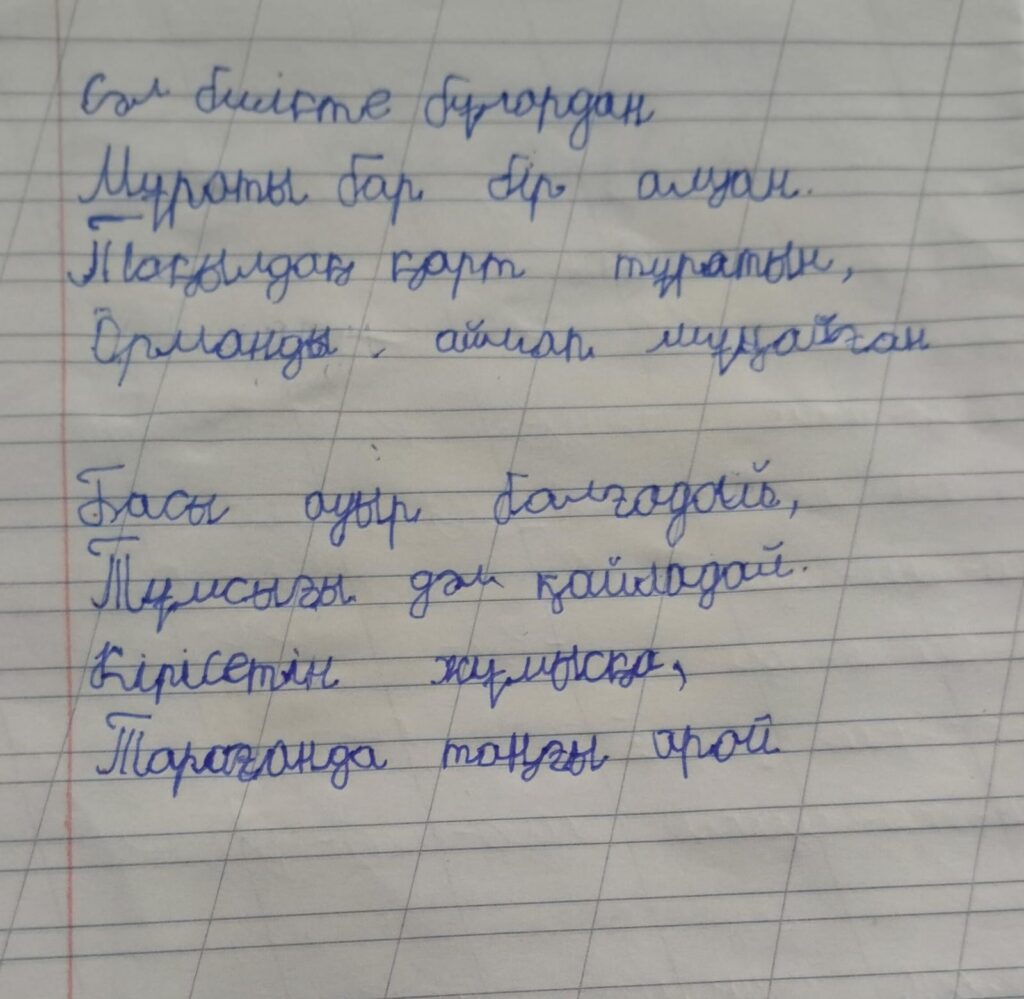 Сәл биікте бұлардан
Мұраты бар бір алуан.
Тақылдақ қарт тұратын,
Орманды аймақ мұңайған

Басы ауыр балғадай,
Тұмсығы дәл қайладай.
Кірісетін жұмысқа,
Тарағанда таңғы арай